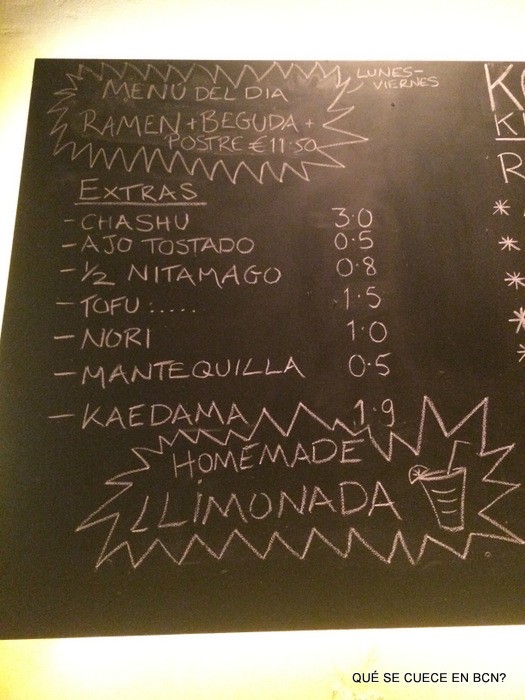 MENÚ DEL DIA
LUNES-
VIERNES
RAMEN + BEGUDA +
POSTRE €11.50
EXTRAS
- CHASHU 3.0
- AJO TOSTADO 0.5
- ½ NITAMAGO 0.8
- TOFU ..... 1.5
- NORI 1.0
- MANTEQUILLA 0.5
- KAEDAMA 1.9
HOMEMADE
LLIMONADA
QUÉ SE CUECE EN BCN?